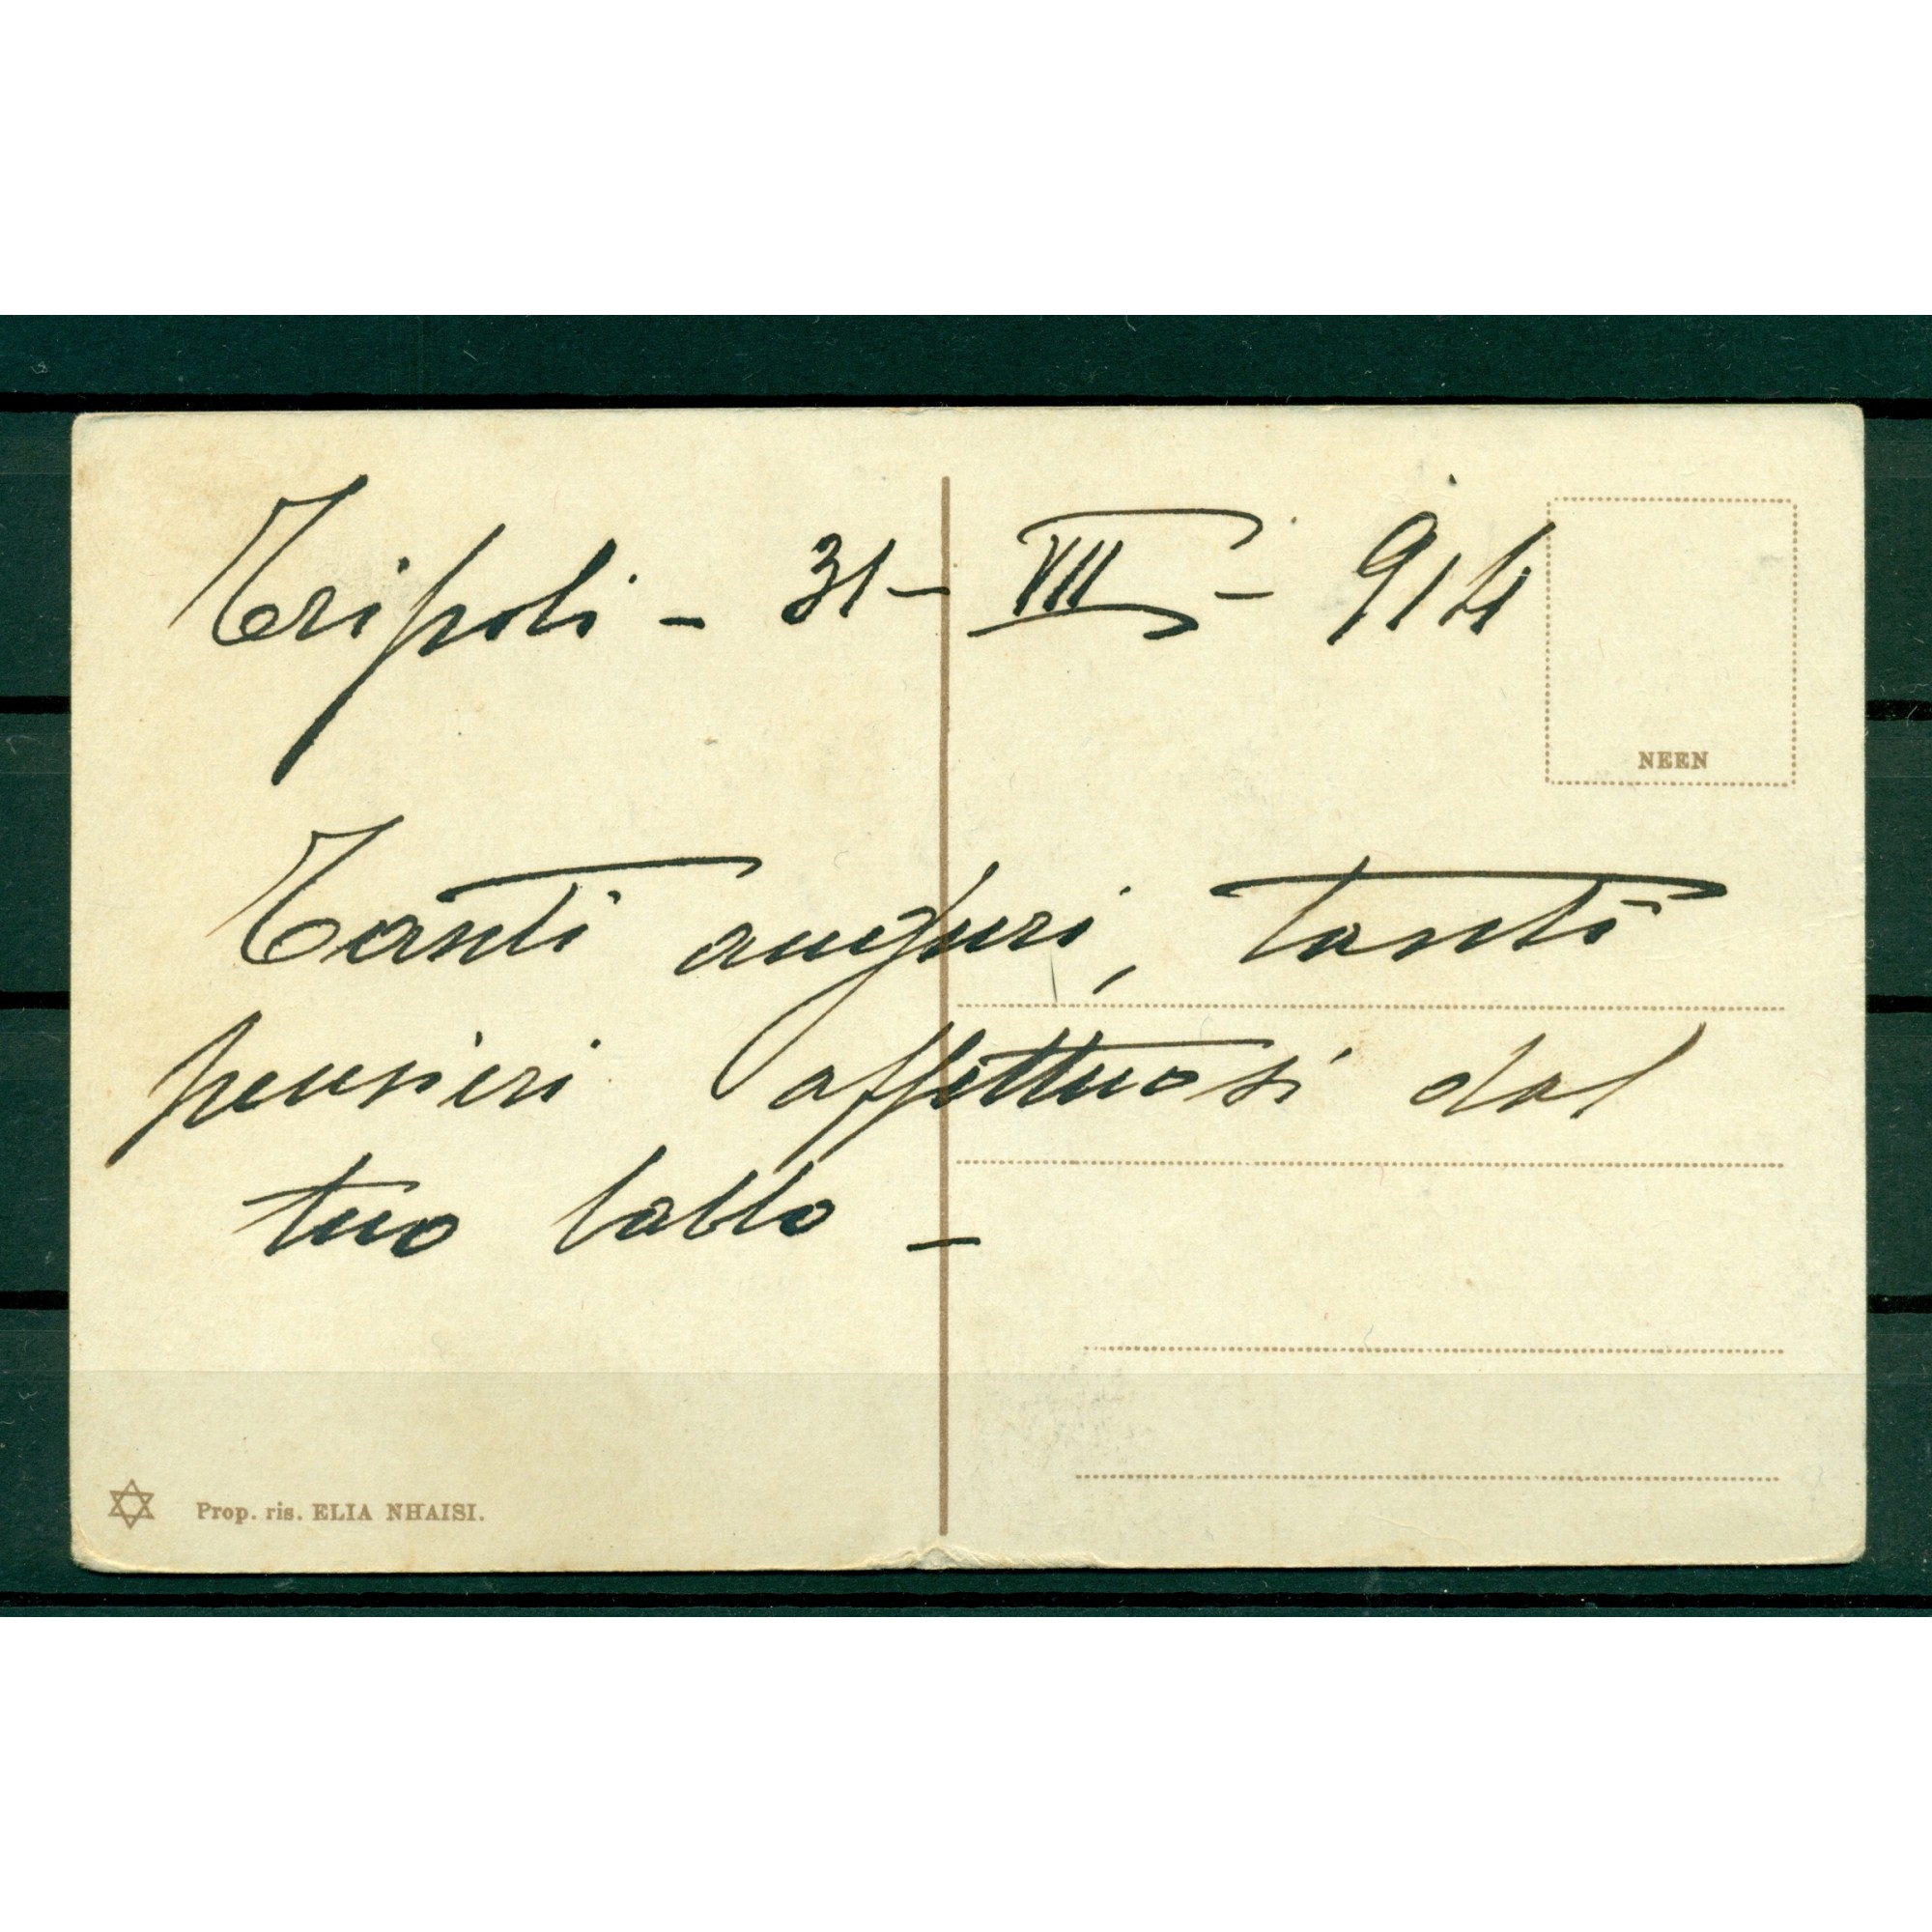 Tripoli - 31 - VII - 914
NEEN
Tanti auguri, tanti
pensieri affettuosi dal
tuo babbo -
Prop. ris. ELIA NHAISI.